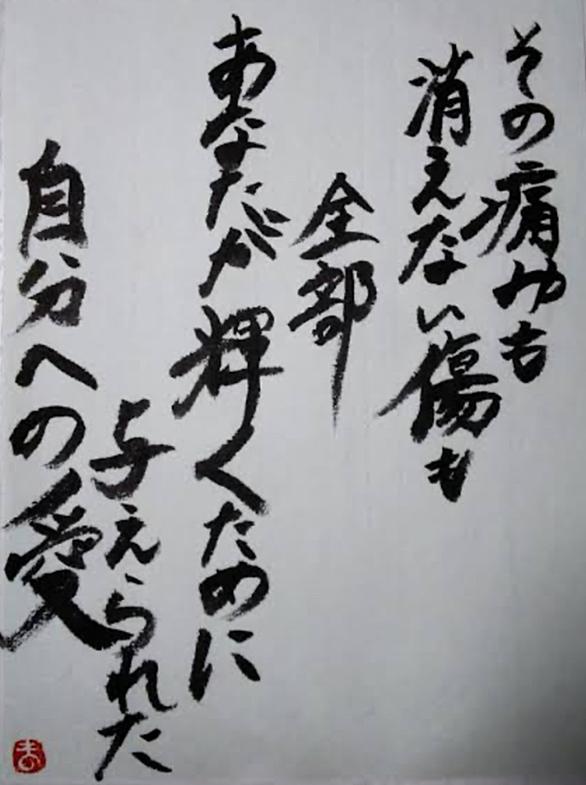 その痛みも
消えない傷も
全部
あなたが輝くために
与えられた
自分への愛